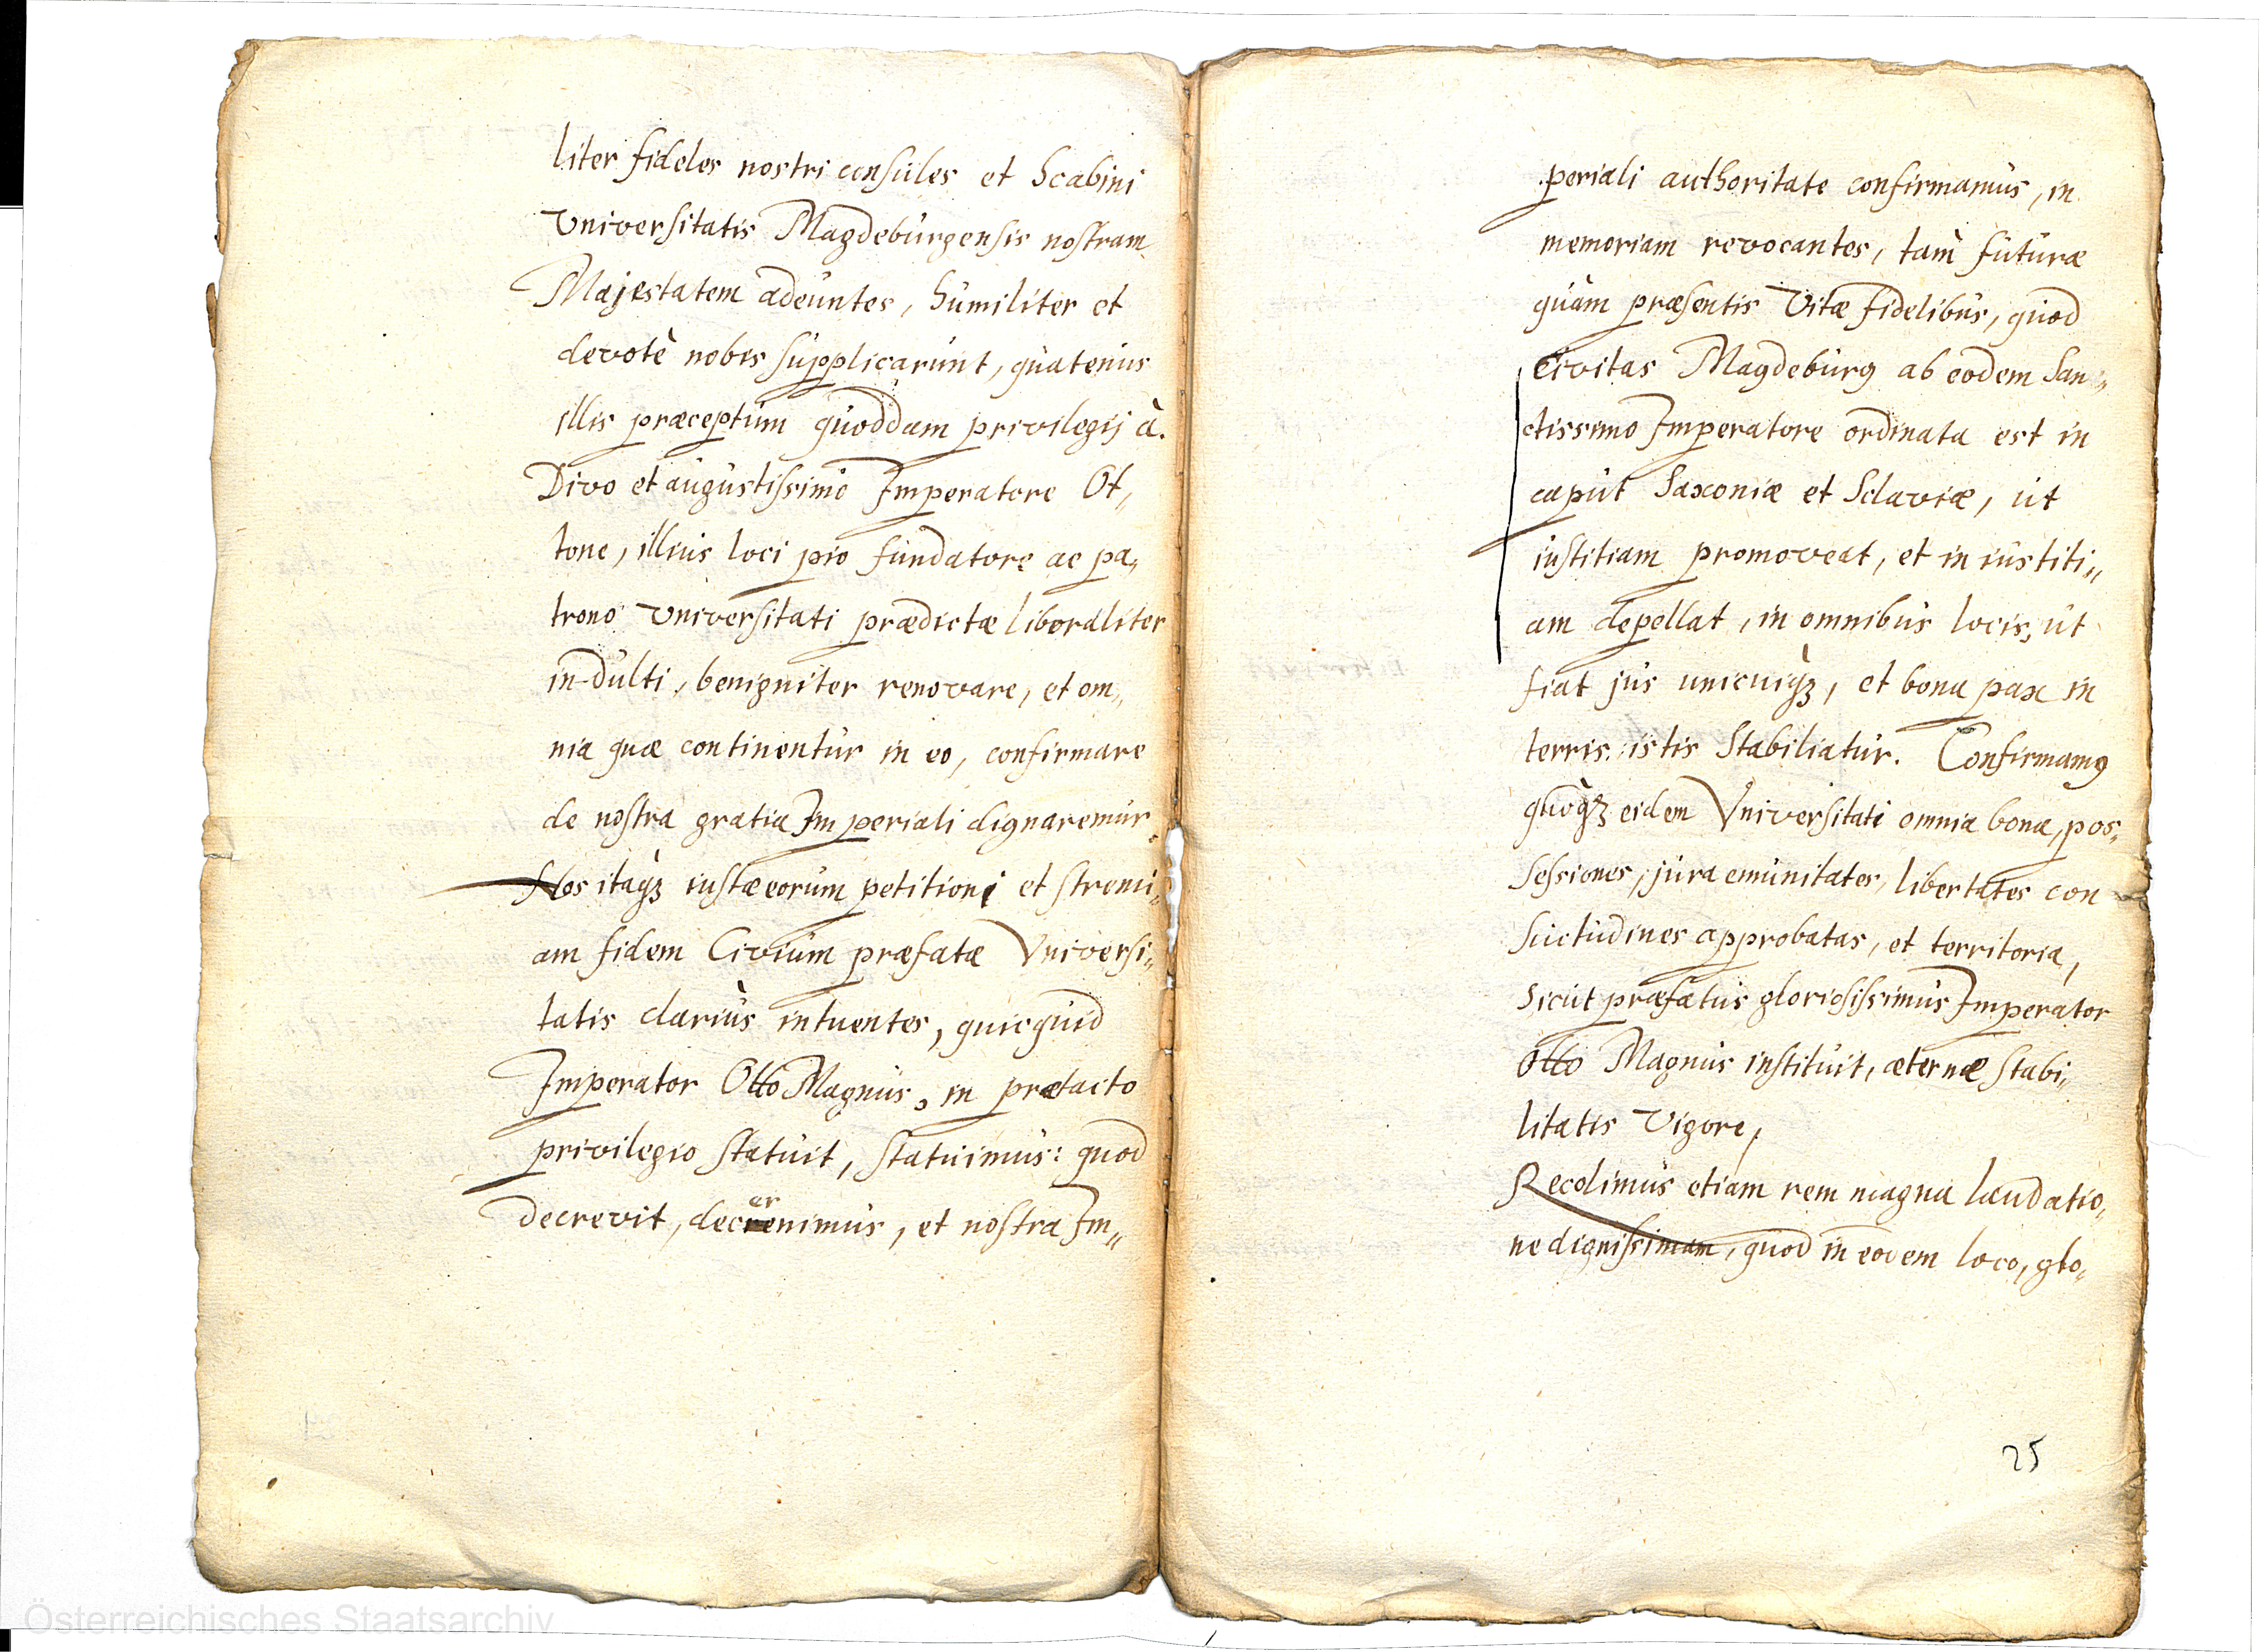 liter fideles nostri consules et Scabini
Universitatis Magdeburgensis nostram
Majestatem adeuntes, humiliter et
devotè nobis supplicarunt, quatenus
illis præceptum quoddam privilegij à.
Divo et augustissimo Imperatore Ot„
tone, illius loci pio fundatore ac pa„
trono Universitati prædictæ liberaliter
indulti, benigniter renovare, et om„
nia quæ continentur in eo, confirmare
de nostra gratia Imperiali dignaremur.
Nos itaqz iustæ eorum petitioni et strenu„
am fidem Civium præfatæ Universi„
tatis clariùs intuentes, quicquid
Imperator Otto Magnus, in prætacto
privilegio statuit, statuimus: quod
er
decrevit, decrenimus, et nostra Im„
periali authoritate confirmamus, in
memoriam revocantes, tàm futuræ
quàm præsentis vitæ fidelibus, quod
Civitas Magdeburg ab eodem San„
ctissimo Imperatore ordinata est in
caput Saxoniæ et Sclaviæ, ut
iustitiam promoveat, et in iustiti„
am depellat, in omnibus locis, ut
fiat jus unicuiqz, et bona pax in
terris istis Stabiliatur. Confirmamꝰ
quoqz eidem Universitati omnia bona, pos„
sessiones, jura emunitates, libertates con
suetudines approbatas, et territoria,
Sicut præfatus gloriosissimus Imperator
Otto Magnus instituit, æternæ stabi„
litatis vigore,
Recolimus etiam rem magna laudatio„
ne dignissimam, quod in eodem loco, glo„
25
Österreichisches Staatsarchiv